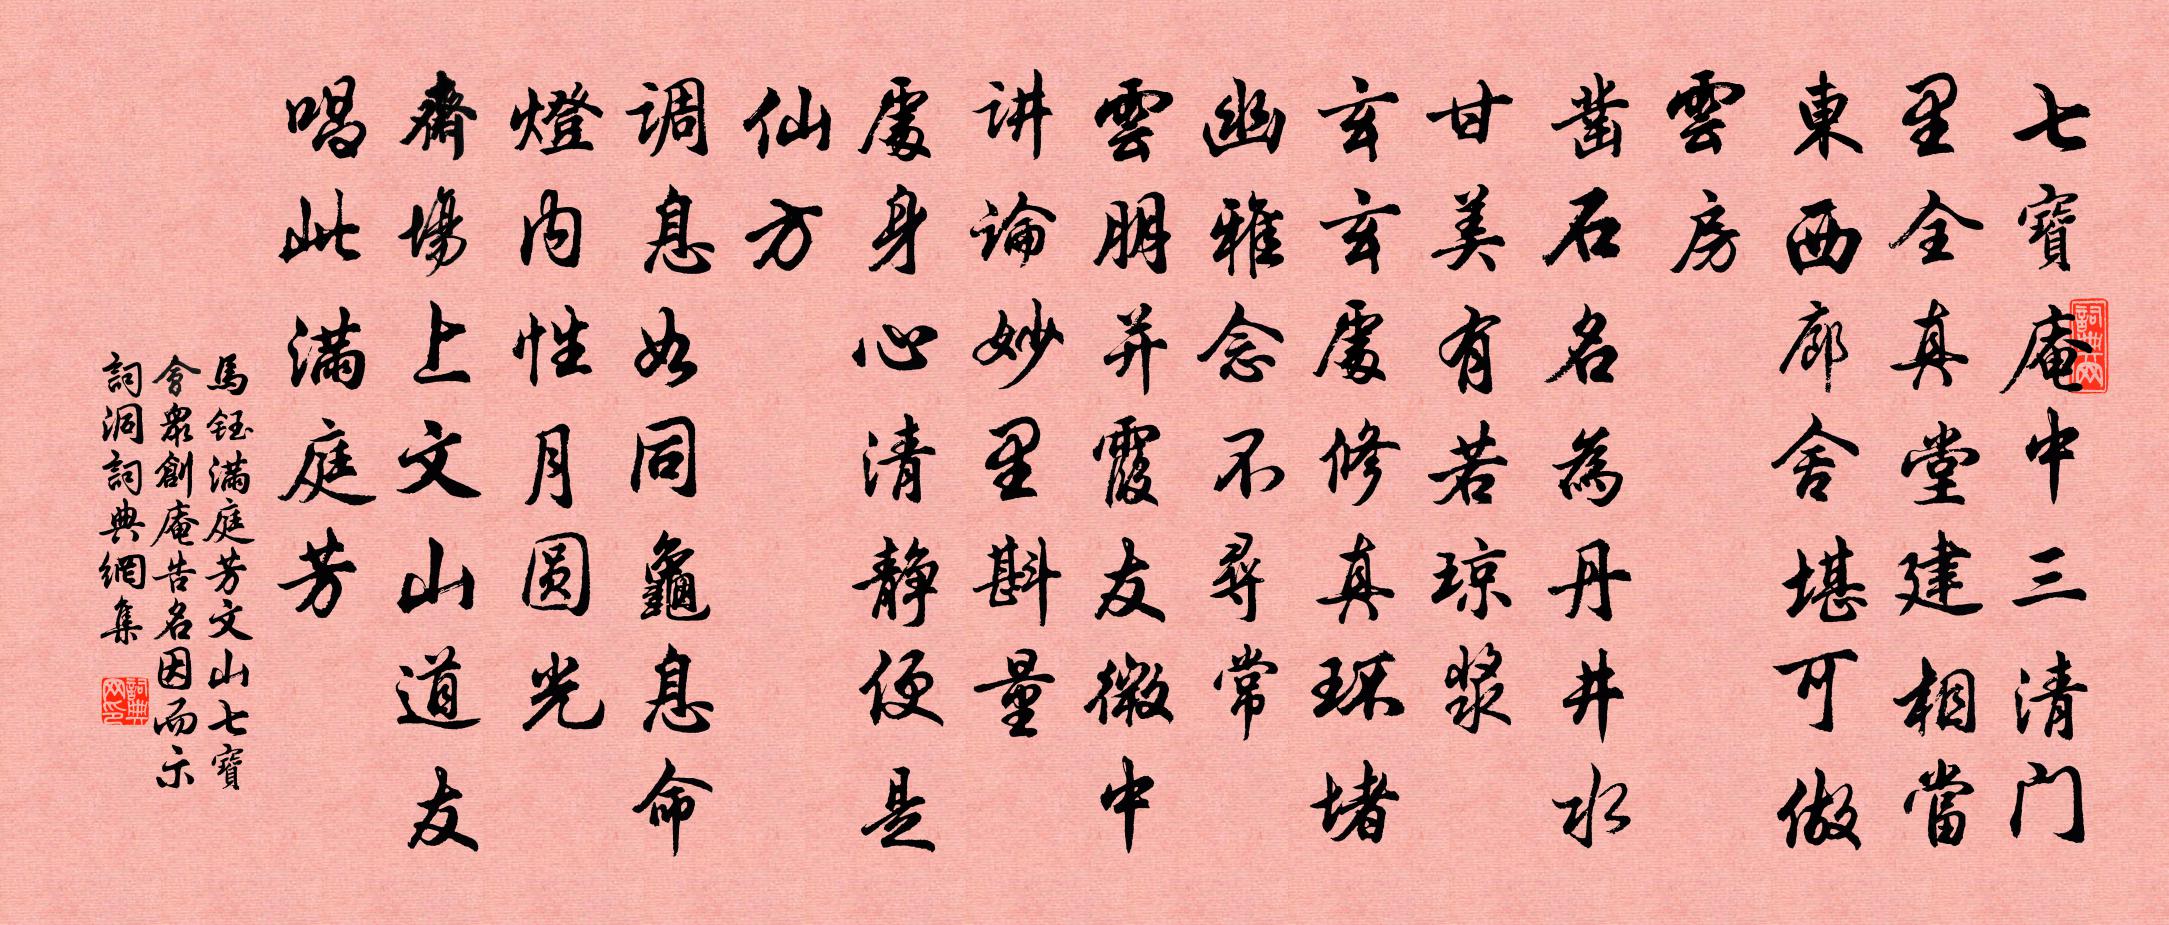 七寶庵中三清门
里全真堂建相當
東西廊舍堪可做
雲房
凿石名為丹井水
甘美有若琼漿
玄玄處修真环堵
幽雅念不尋常
雲朋并霞友微中
讲論妙里斟量
處身心清静便是
仙方
调息如同龜息命
燈内性月圆光
齋場上文山道友
唱此满庭芳
馬鈺满庭芳文山七寶
會眾創庵告名因而示
詞洞詞典網集
詞典网
詞典网印